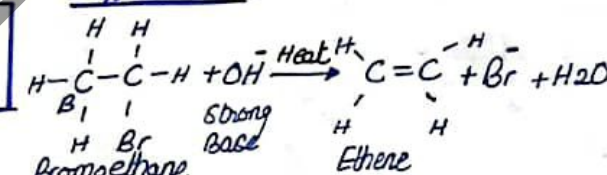 H H
H-C-C-H + OH⁻ Heat → H H C=C + Br⁻ + H2O
B
H Br Strong Base H H
Bromoethane Ethene